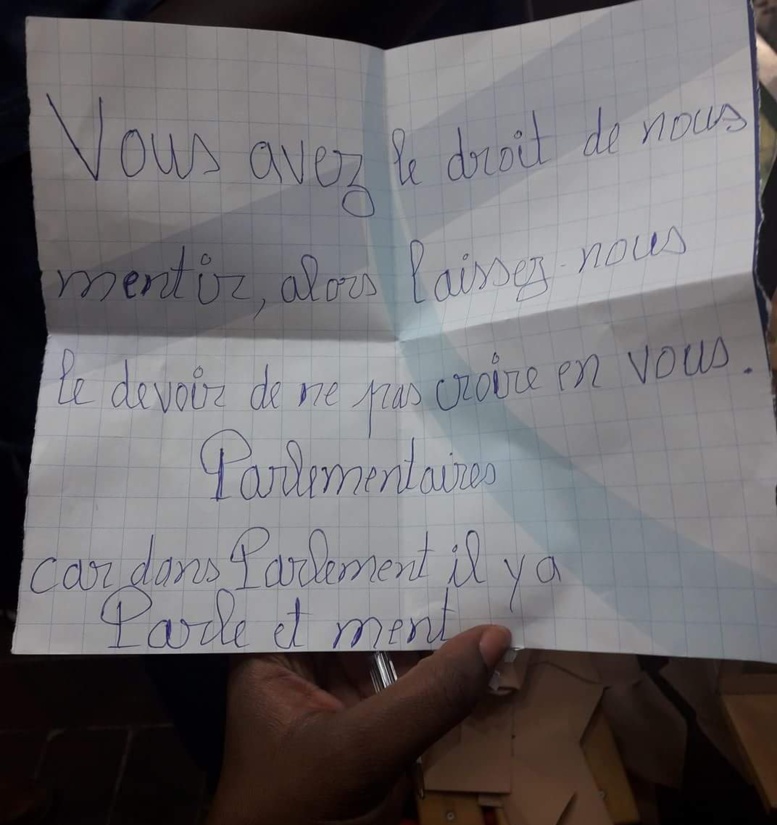 Vous avez le droit de nous
mentir, alors laissez-nous
le devoir de ne pas croire en vous.
Parlementaires
car dans Parlement il y a
Parle et ment